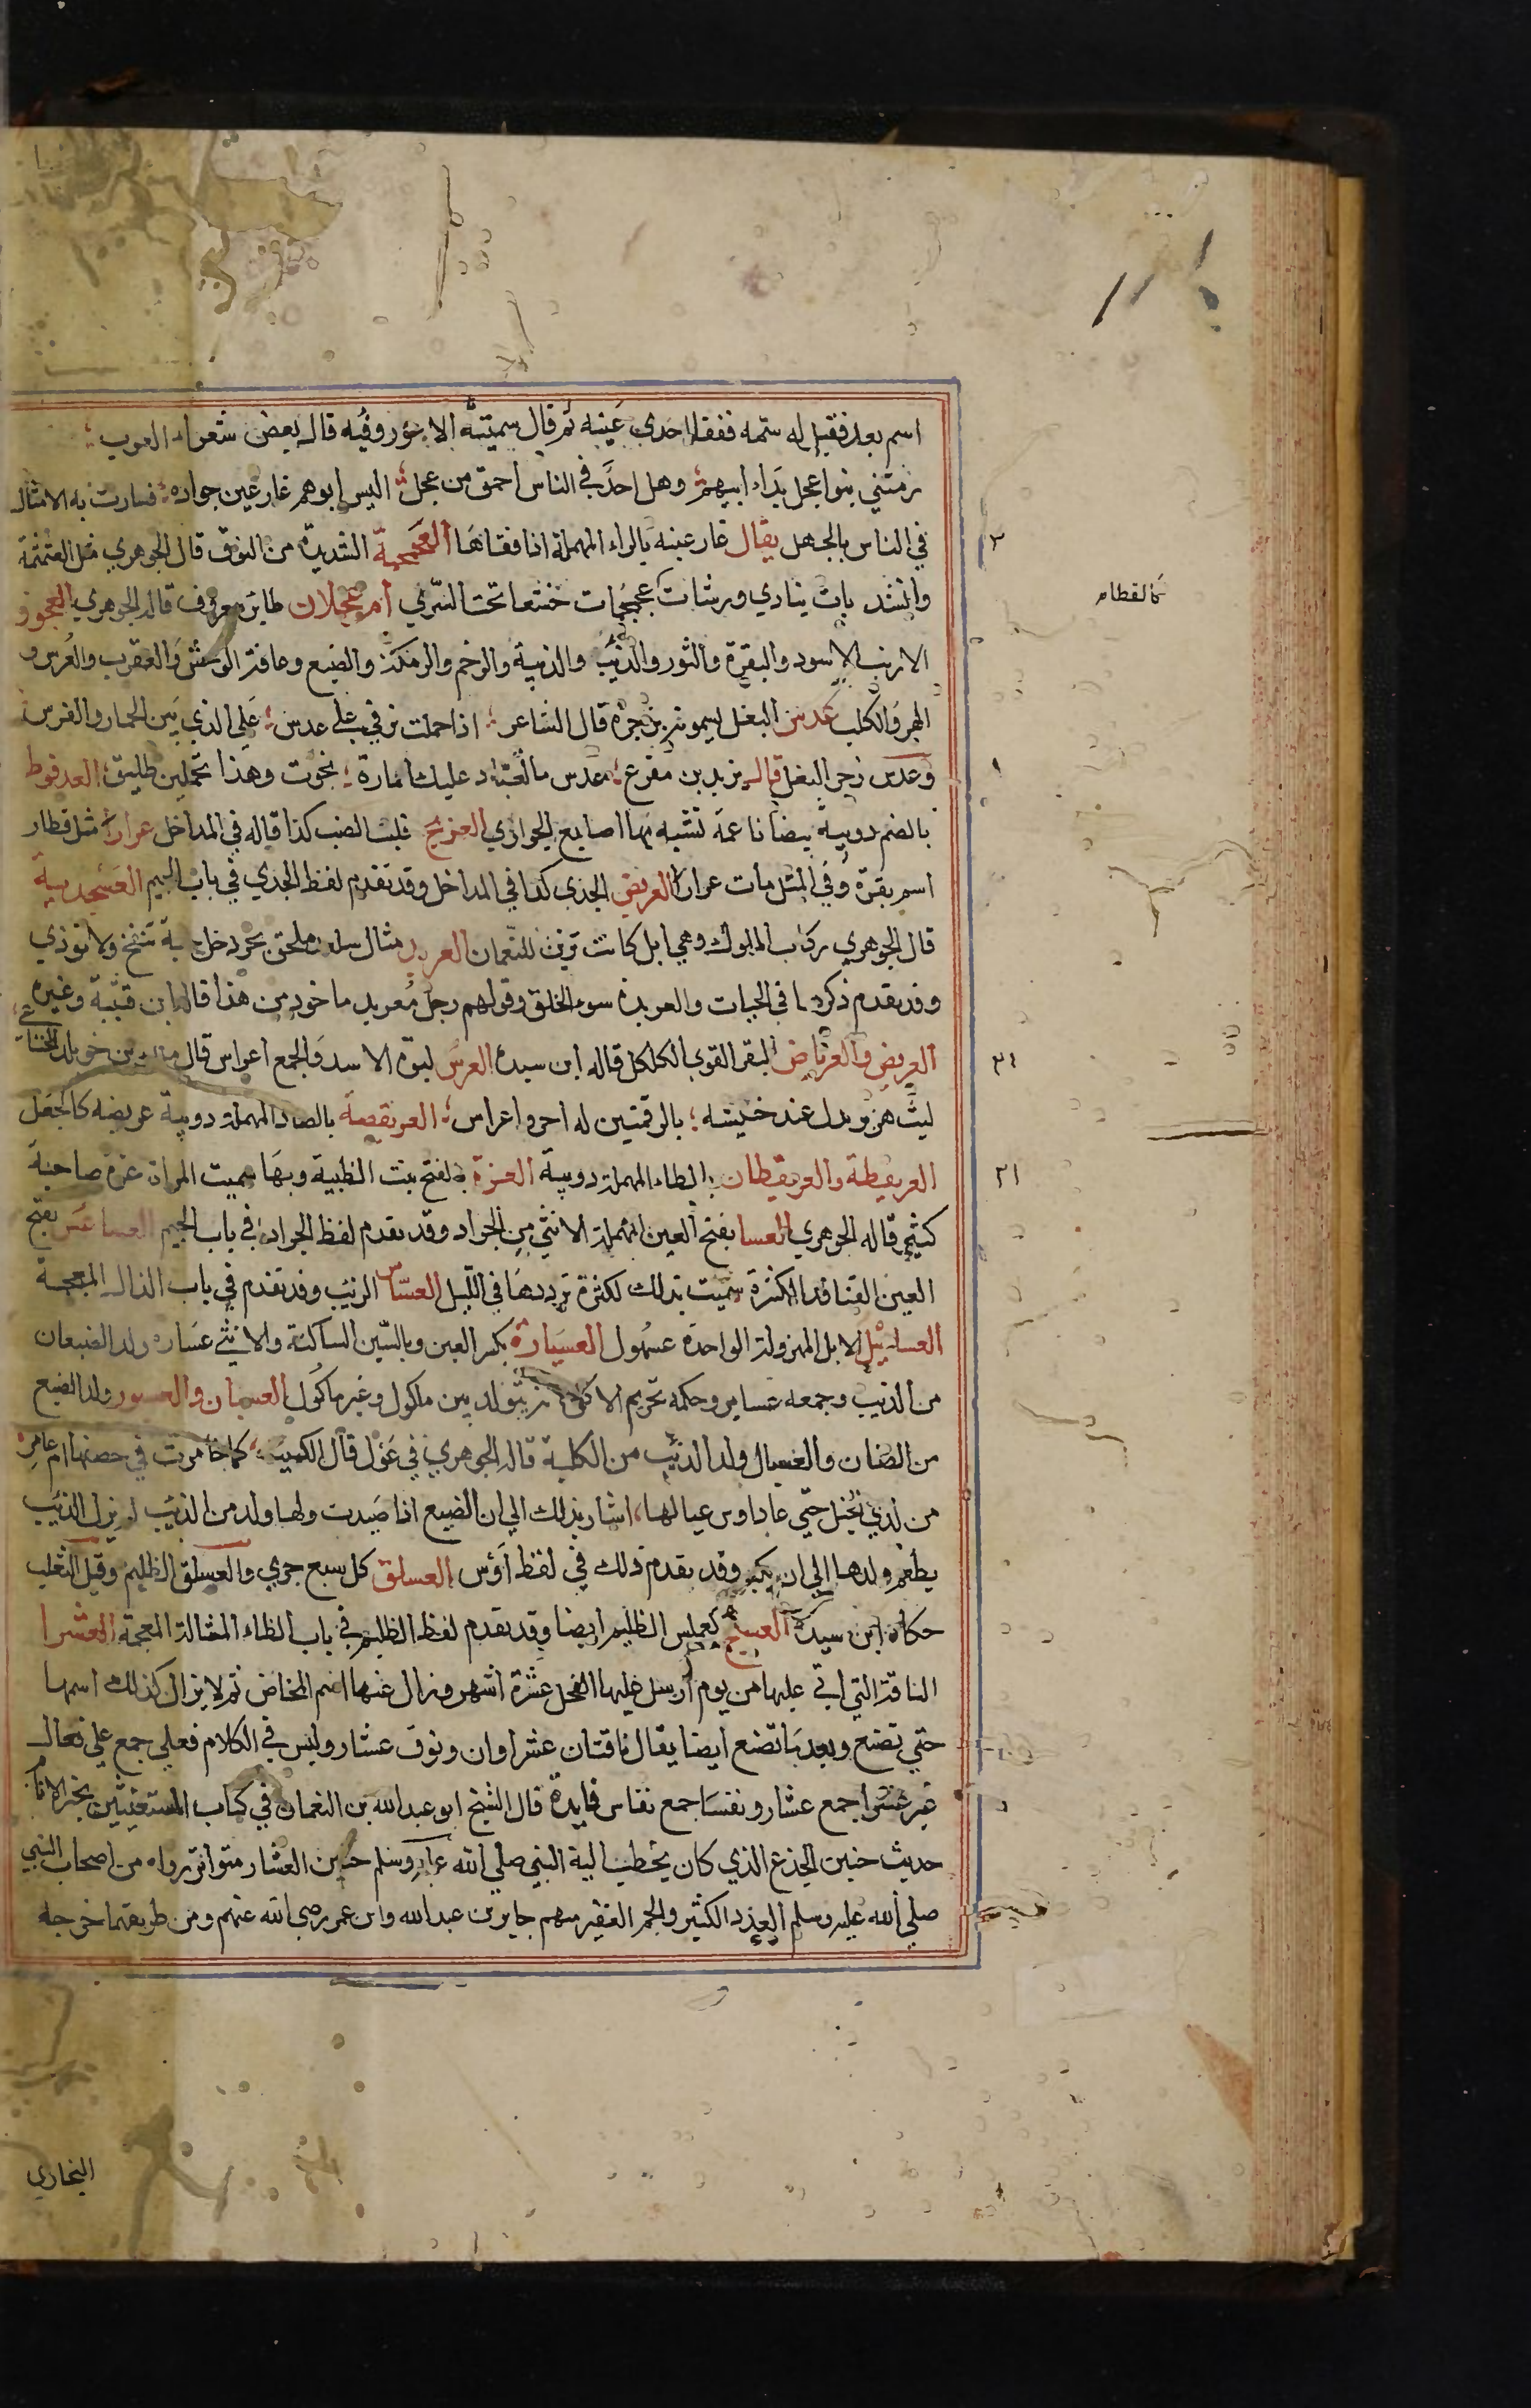 اسم بعد فقيل له سمّه ففقا احدى عينيه ثم قال سميته الاعور وفيه قال بعض شعراء العرب
رمتني بنوا عجل بداء ابيهم وهل احد في الناس احمق من عجل اليس ابوهم عار عين جواده فسارت به الامثال
في الناس بالجهل يقال عار عينه بالراء المهملة اذا فقاها العجمجمة الشديدة من النوق قال الجوهري مثل العثمثمة
وانشد بات يناري ورشات عجمجمات خشعا تحت السري ام عجلان طاير معروف قاله الجوهري العجوز
كالقطام
الارنب والاسود والبقرة والثور والذئب والذيبة والرخم والرمكة والضبع وعافة الوحش والعقرب والفرس و
الهر والكلب عدس البغل يسمونه بزجره قال الشاعر اذا حملت بزتي على عدس على الذي بين الحمار والفرس
وعدس زجر البغل قال يزيد بن مفرع عدس ما لعباد عليك امارة نجوت وهذا تحملين طليق العدفوط
بالضم دويبة بيضا ناعمة تشبه بها اصابع الجواري العزيج فلت الضب كذا قاله في المداخل عرار مثل قطار
اسم بقرة وفي المثل مات عرار العريض الجدي كذا في المداخل وقد تقدم لفظ الجدي في باب الجيم العسجدية
قال الجوهري ركاب الملوك وهي ابل كانت تزين للنعمان العربد مثال سلغد ملحق بجردحل حية تنفخ ولا توذي
وقد تقدم ذكرها في الحيات والعربدة سوء الخلق وقولهم رجل معربد ماخوذ من هذا قاله ابن قتيبة وغيره
العربض والعرباض البقر القوي الكلكل قاله ابن سيدة العرس لبوة الاسد والجمع اعراس قال مالك بن خويلد الخناعي
ليث هزبر مدل عند خيسته بالرقمتين له اجر واعراس العريقصة بالصاد المهملة دويبة عريضه كالجعل
العريقطة والعريقطان بالطاء المهملة دويبة العزة بالفتح بنت الظبية وبها سميت المراة عزة صاحبة
كثير قاله الجوهري العسا بفتح العين المهملة الانثي من الجراد وقد تقدم لفظ الجراد في باب الجيم العساعس بفتح
العين القنافد الكثرة سميت بذلك لكثرة ترددها في الليل العساس الذيب وقد تقدم في باب الذال المعجمة
العساهيل الابل المهزولة الواحدة عسهول العسبارة بكسر العين وبالسين الساكنة والانثى عسارة ولد الضبعان
من الذيب وجمعه عسابر وحكمه تحريم الاكل لانه متولد بين ماكول وغير ماكول العسبان والعسبور ولد الضبع
من الضان والعسبال ولد الذئب من الكلبة قاله الجوهري في عول قال الكميت كما خامرت في حضنها ام عامر
من لذي الحبل حتى عال اوس عيالها اشار بذلك الي ان الضبع اذا صيدت ولها ولد من الذيب لم يزل الذيب
يطعم ولدها الي ان يكبر وقد تقدم ذلك في لفظ اوس العسلق كل سبع جري والعسلق الظليم وقيل الثعلب
حكاه ابن سيدة العسنج كعملس الظليم ايضا وقد تقدم لفظ الظليم في باب الظاء المشالة المعجمة العشرا
الناقة التي اتي عليها من يوم ارسل عليها الفحل عشرة اشهر وزال عنها اسم المخاض ثم لا يزال كذلك اسمها
حتي تضع وبعد ما تضع ايضا يقال ناقتان عشراوان ونوق عشار وليس في الكلام فعلى جمع على فعال
غير عشرا جمع عشار ونفسا جمع نفاس فايدة قال الشيخ ابو عبدالله بن النعمان في كتاب المستغيثين بخير الانام
حديث حنين الجذع الذي كان يخطب اليه النبي صلي الله عليه وسلم حنين العشار متواتر رواه من اصحاب النبي
صلي الله عليه وسلم العدد الكثير والجم الغفير منهم جابر بن عبدالله وابن عمر رضي الله عنهم ومن طريقهما خرجه
البخاري